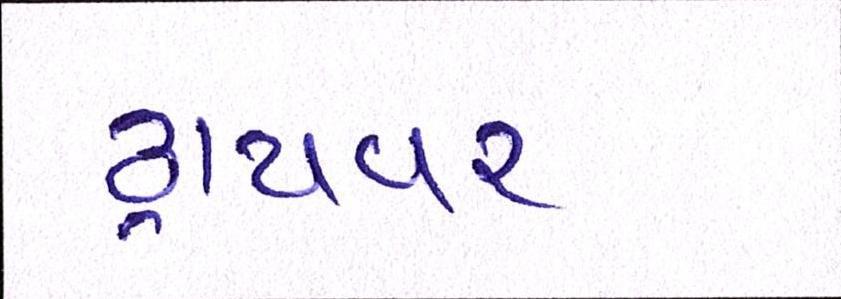 ડ્રાયવર